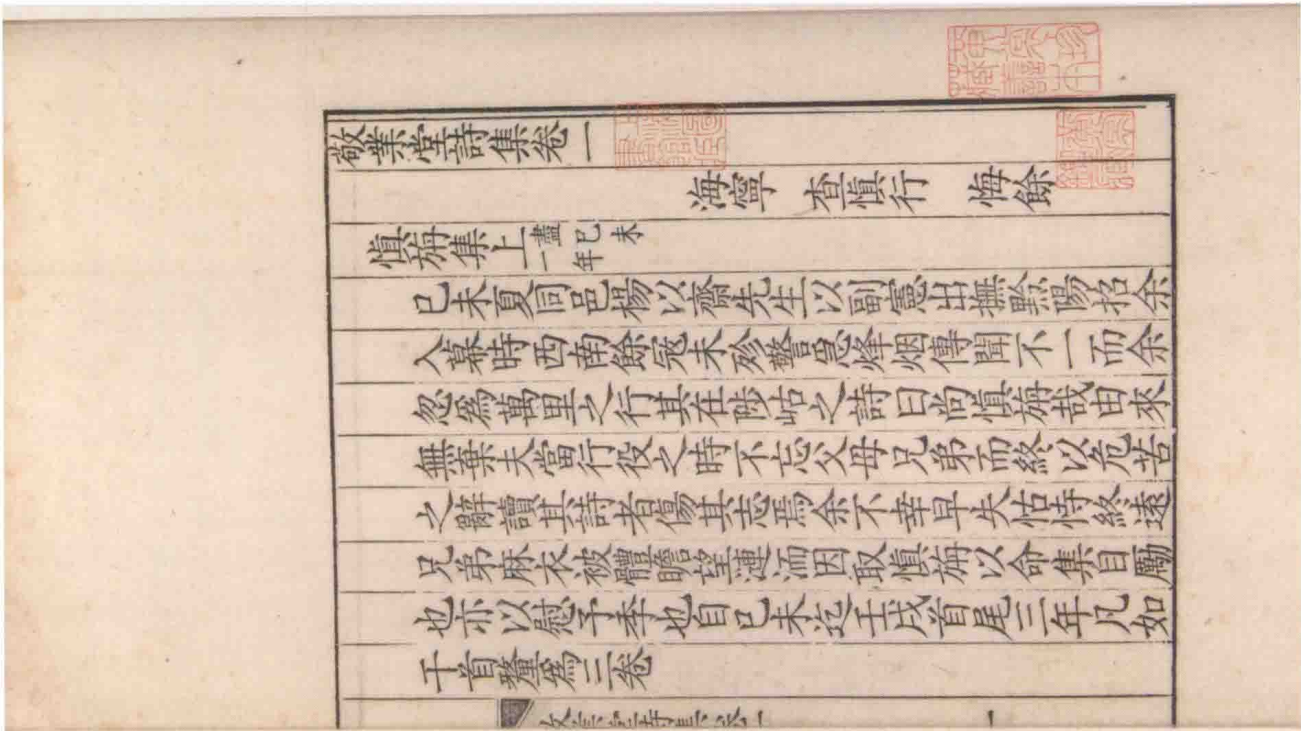 敬業堂詩集卷一
海寧 查慎行 悔餘
慎旃集上 盡一年 己未
己未夏同邑楊以齋先生以副憲出撫黔陽招余
入幕時西南餘寇未殄警急烽烟傳聞不一而余
忽爲萬里之行其在陟岵之詩曰尚慎旃哉由來
無棄夫當行役之時不忘父母兄弟而終以危苦
之辭讀其詩者傷其志焉余不幸早失怙恃終遠
兄弟麻衣被體瞻望漣洏因取慎旃以命集自勵
也亦以慰予季也自己未迄壬戌首尾三年凡如
干首釐爲三卷
敬業堂詩集卷一 一